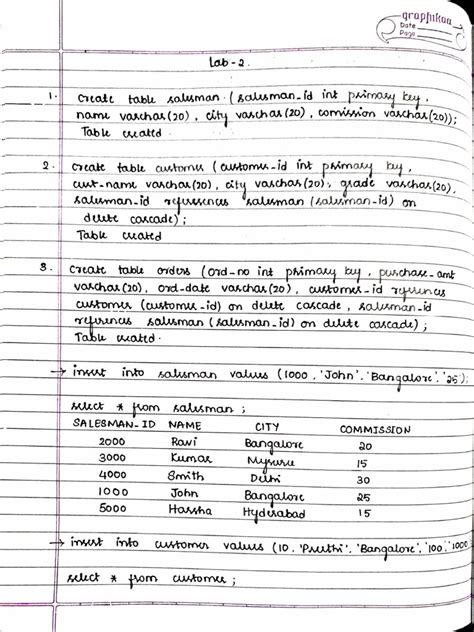 grapfukaa
Date
Page
Lab-2.
1. Create table salesman (salesman-id int primary key,
name varchar(20), city varchar(20), comission varchar(20));
Table created.
2. Create table customer (customer-id int primary key,
cust-name varchar(20), city varchar(20), grade varchar(20),
salesman-id references salesman (salesman-id) on
delete cascade);
Table created
3. Create table orders (ord-no int primary key, purchase-amt
varchar(20), ord-date varchar(20), customer-id references
customer (customer-id) on delete cascade, salesman-id
references salesman (salesman-id) on delete cascade);
Table created.
→ insert into salesman values (1000, 'John', 'Bangalore', '25');
select * from salesman;
SALESMAN-ID NAME CITY COMMISSION
2000 Ravi Bangalore 20
3000 Kumar Mysuru 15
4000 Smith Delhi 30
1000 John Bangalore 25
5000 Harsha Hyderabad 15
→ insert into customer values (10, 'Preethi', 'Bangalore', '100', 1000
select * from customer;